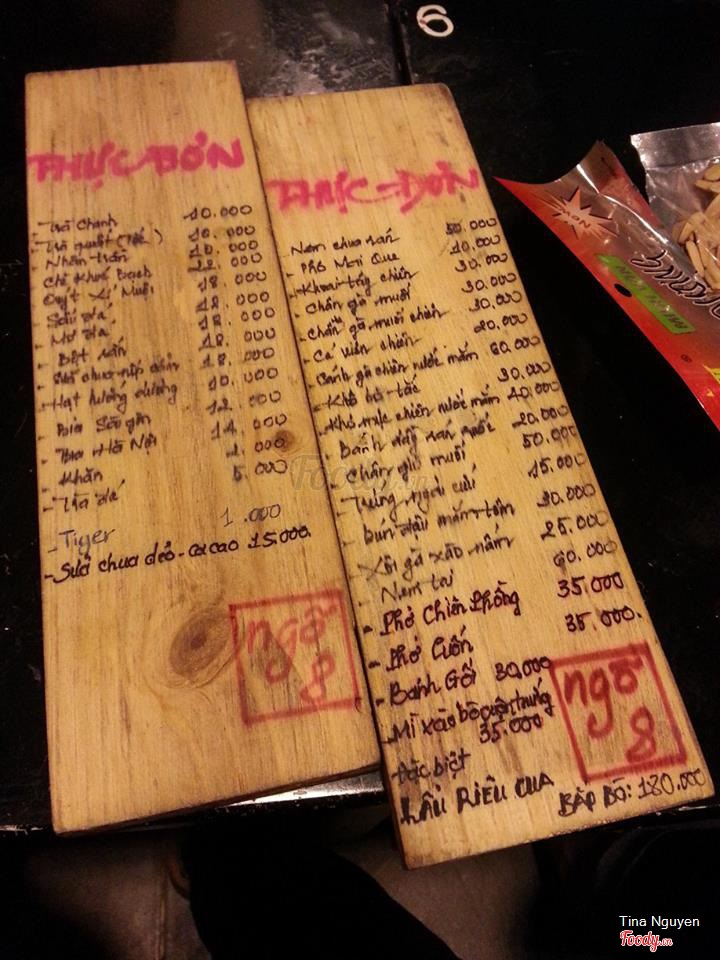 6
THỰC ĐƠN
- Trà chanh 10.000
- Trà quất (Tắc) 10.000
- Nhân trần 10.000
- Chè Khúc Bạch 22.000
- Quýt Xí Muội 18.000
- Sấu đá 18.000
- Mơ đá 18.000
- Bột sắn 18.000
- Sữa chua nếp cẩm 18.000
- Hạt hướng dương 10.000
- Bia Sài gòn 12.000
- Bia Hà Nội 14.000
- Khăn 2.000
- Trà đá 5.000
- Tiger 1.000
- Sữa chua dẻo - cacao 15.000
ngõ
8
THỰC ĐƠN
- Nem chua rán 50.000
- Phô Mai Que 10.000
- Khoai tây chiên 30.000
- Chân gà muối 30.000
- Chân gà muối chiên 30.000
- Cá viên chiên 20.000
- Cánh gà chiên nước mắm 60.000
- Khô bò tắc 30.000
- Khô mực chiên nước mắm 40.000
- Bánh dày rán ruốc 20.000
- Chân giò muối 50.000
- Trứng ngải cứu 15.000
- Bún đậu mắm tôm 30.000
- Xôi gà xào nấm 25.000
- Nem tai 60.000
- Phở Chiên Phồng 35.000
- Phở Cuốn 35.000
- Bánh Gối 30.000
- Mì xào bò trứng 35.000
Đặc biệt
LẨU RIÊU CUA BẮP BÒ: 180.000
ngõ
8
Tina Nguyen
Foody.vn